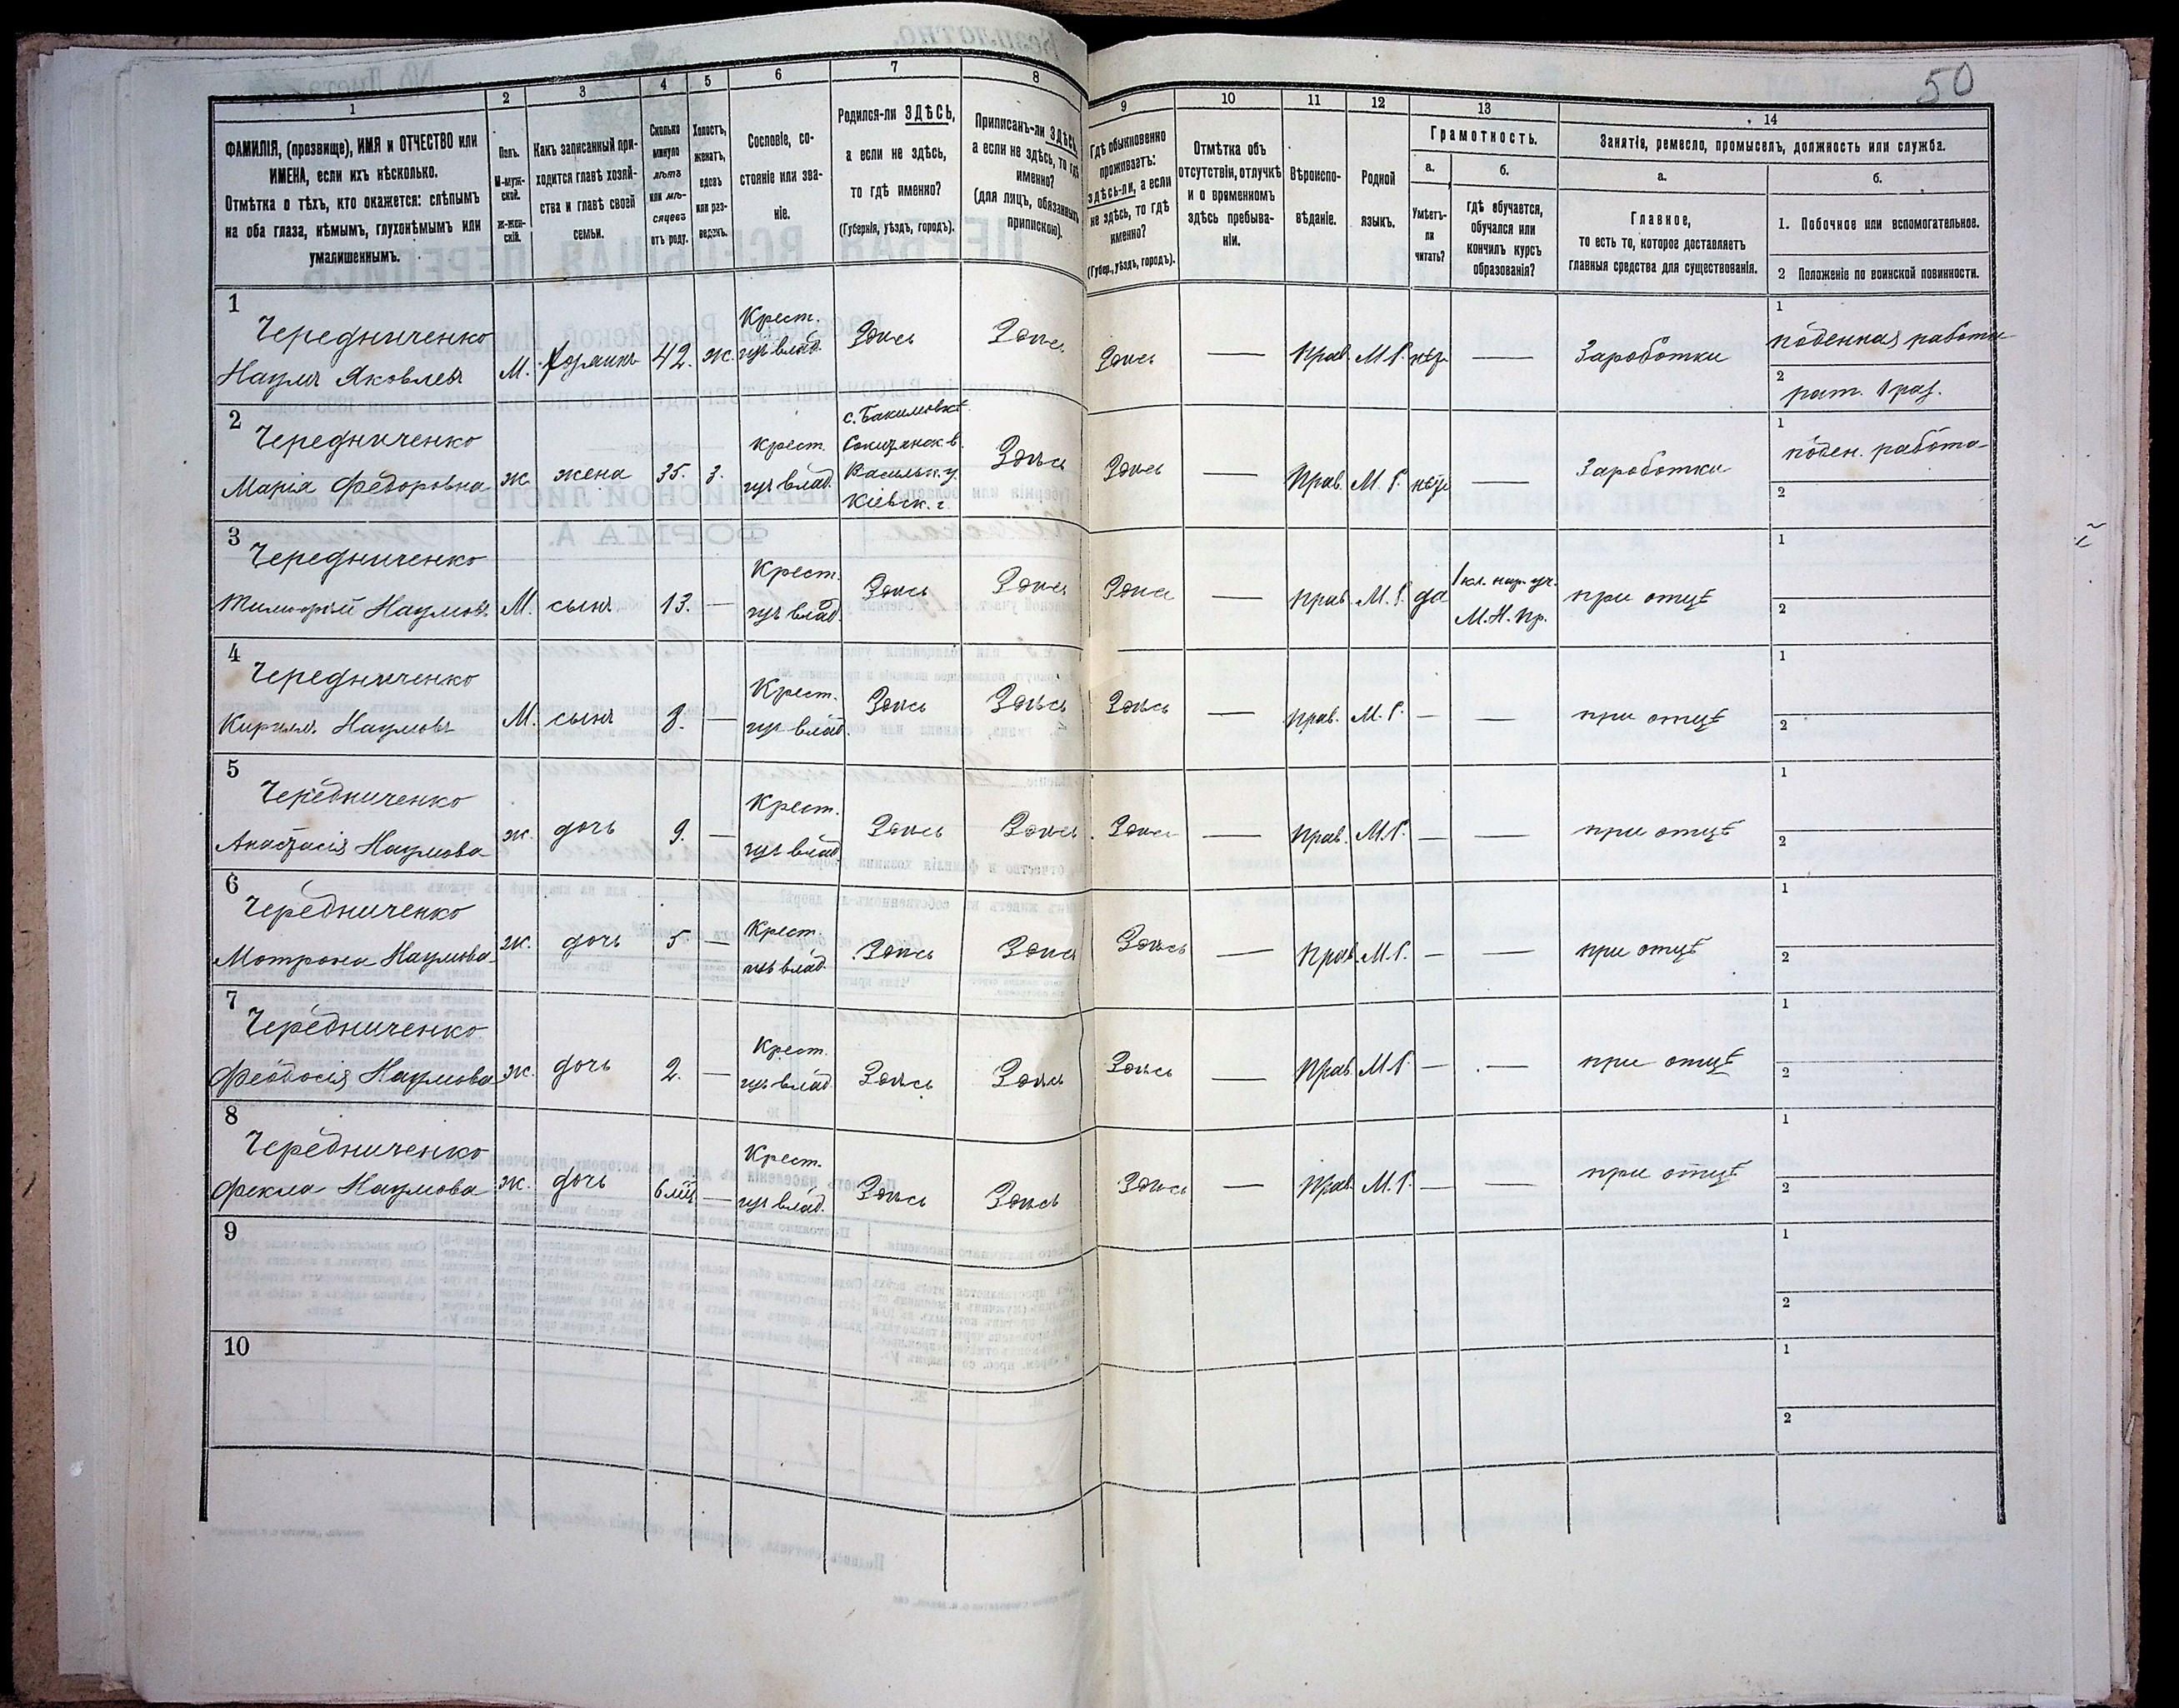 50
1
2
3
4
5
6
7
8
9
10
11
12
13
14
ФАМИЛІЯ, (прозвище), ИМЯ и ОТЧЕСТВО или
ИМЕНА, если ихъ нѣсколько.
Отмѣтка о тѣхъ, кто окажется: слѣпымъ
на оба глаза, нѣмымъ, глухонѣмымъ или
умалишеннымъ.
Полъ.
М-муж-
ской.
ж-жен-
скій.
Какъ записанный при-
ходится главѣ хозяй-
ства и главѣ своей
семьи.
Сколько
минуло
лѣтъ
или мѣ-
сяцевъ
отъ роду.
Холостъ,
женатъ,
вдовъ
или раз-
веденъ.
Сословіе, со-
стояніе или зва-
ніе.
Родился-ли ЗДѢСЬ,
а если не здѣсь,
то гдѣ именно?
(Губернія, уѣздъ, городъ).
Приписанъ-ли ЗДѢСЬ,
а если не здѣсь, то гдѣ
именно?
(для лицъ, обязанныхъ
припискою).
Гдѣ обыкновенно
проживаетъ:
здѣсь-ли, а если
не здѣсь, то гдѣ
именно?
(Губер., уѣздъ, городъ).
Отмѣтка объ
отсутствіи, отлучкѣ
и о временномъ
здѣсь пребыва-
ніи.
Вѣроиспо-
вѣданіе.
Родной
языкъ.
Грамотность.
а.
Умѣетъ-
ли
читать?
б.
гдѣ обучается,
обучался или
кончилъ курсъ
образованія?
Занятіе, ремесло, промыселъ, должность или служба.
а.
Главное,
то есть то, которое доставляетъ
главныя средства для существованія.
б.
1. Побочное или вспомогательное.
2 Положеніе по воинской повинности.
1
Чередниченко
Наумъ Яковлевъ
М. Хозяинъ 42. ж. Крест.
изъ влад. Здѣсь Здѣсь Здѣсь — Прав. М.Р. нѣтъ — Заработки
1
поденная работа
2
рат. 1 раз.
2
Чередниченко
Марія Федоровна
ж. жена 35. з. Крест.
изъ влад.
Васильк. у.
Кіевск. г.
Здѣсь Здѣсь — Прав. М. Р. нѣтъ — Заработки
1
поден. работа
2
3
Чередниченко
Тимофѣй Наумовъ
М. сынъ 13. — Крест.
изъ влад. Здѣсь Здѣсь Здѣсь — Прав. М. Р. да
1 кл. нар. уч.
М. Н. Пр.
при отцѣ
1
2
4
Чередниченко
Кирилъ Наумовъ
М. сынъ — Крест.
изъ влад. Здѣсь Здѣсь Здѣсь — Прав. М. Р. — — при отцѣ
1
2
5
Чередниченко
Анастасія Наумова
ж. дочь 9. — Крест.
изъ влад. Здѣсь Здѣсь Здѣсь — Прав. М.Р. — — при отцѣ
1
2
6
Чередниченко
Мотрона Наумова
ж. дочь 5. — Крест.
изъ влад. Здѣсь Здѣсь Здѣсь — Прав. М.Р. — — при отцѣ
1
2
7
Чередниченко
Феодосія Наумова
ж. дочь 2. — Крест.
изъ влад. Здѣсь Здѣсь Здѣсь — Прав. М.Р. — — при отцѣ
1
2
8
Чередниченко
Фекла Наумова
ж. дочь — Крест.
изъ влад. Здѣсь Здѣсь Здѣсь — Прав. М.Р. — — при отцѣ
1
2
9
1
2
10
1
2